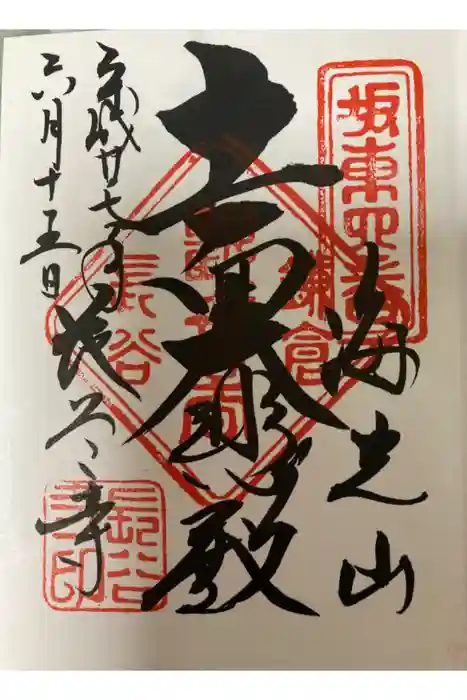 坂東四番
海光山
十一面大悲殿
鎌倉
長谷
平成廿七年
六月十五日
長谷寺